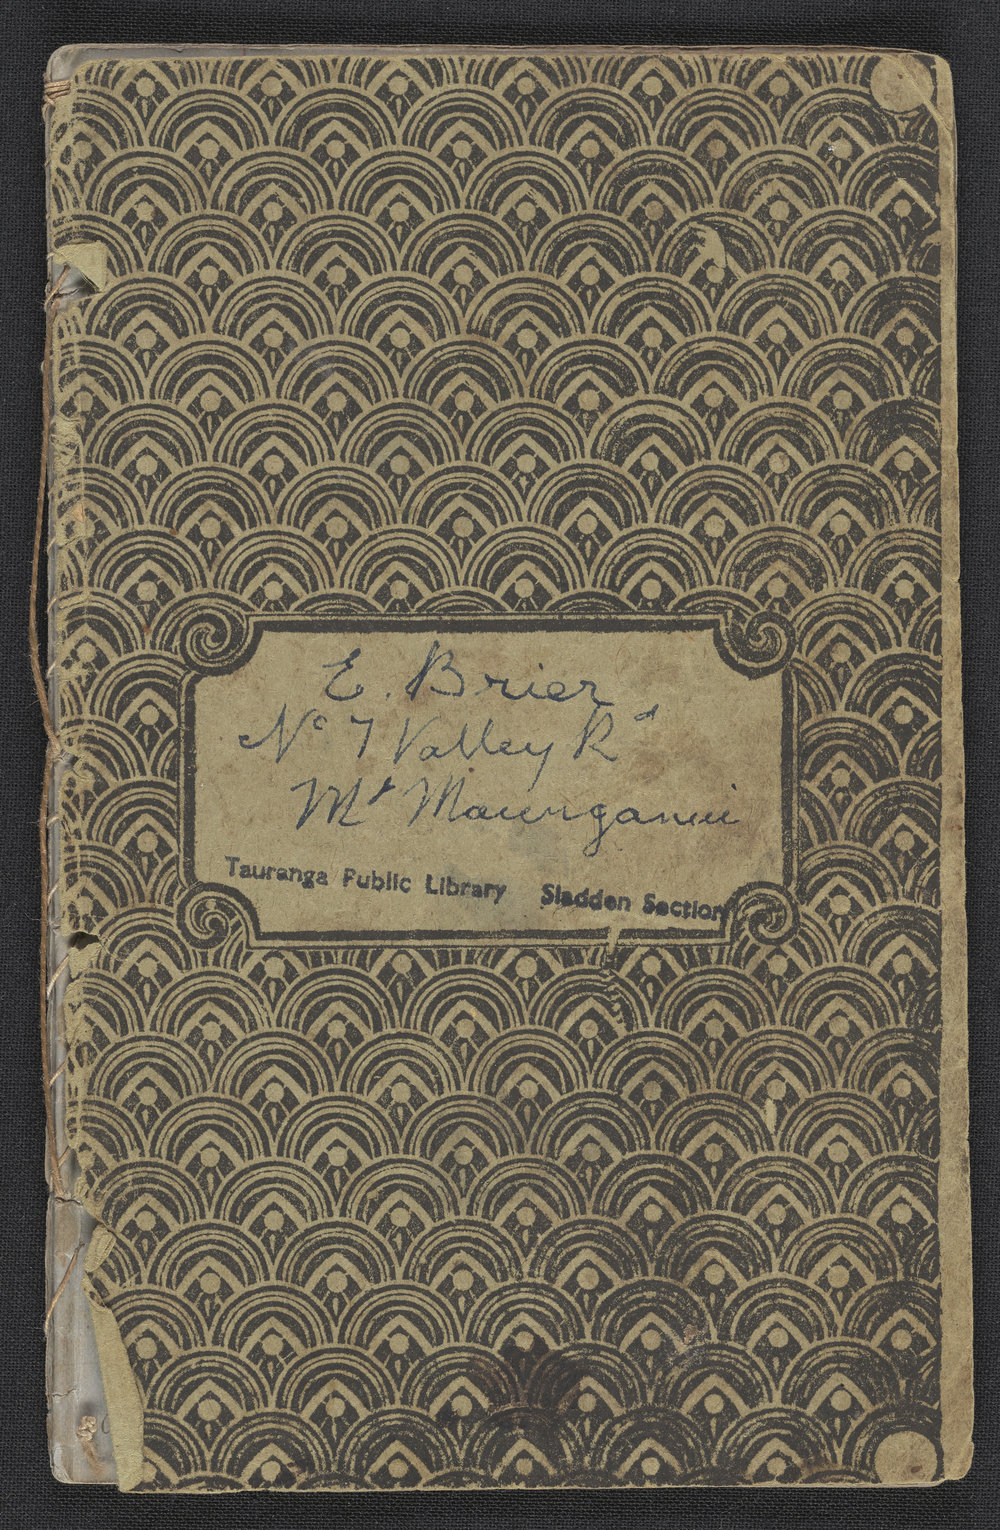 E. Brier
No 7 Valley Rd
Mt Maunganui
Tauranga Public Library Sladden Section